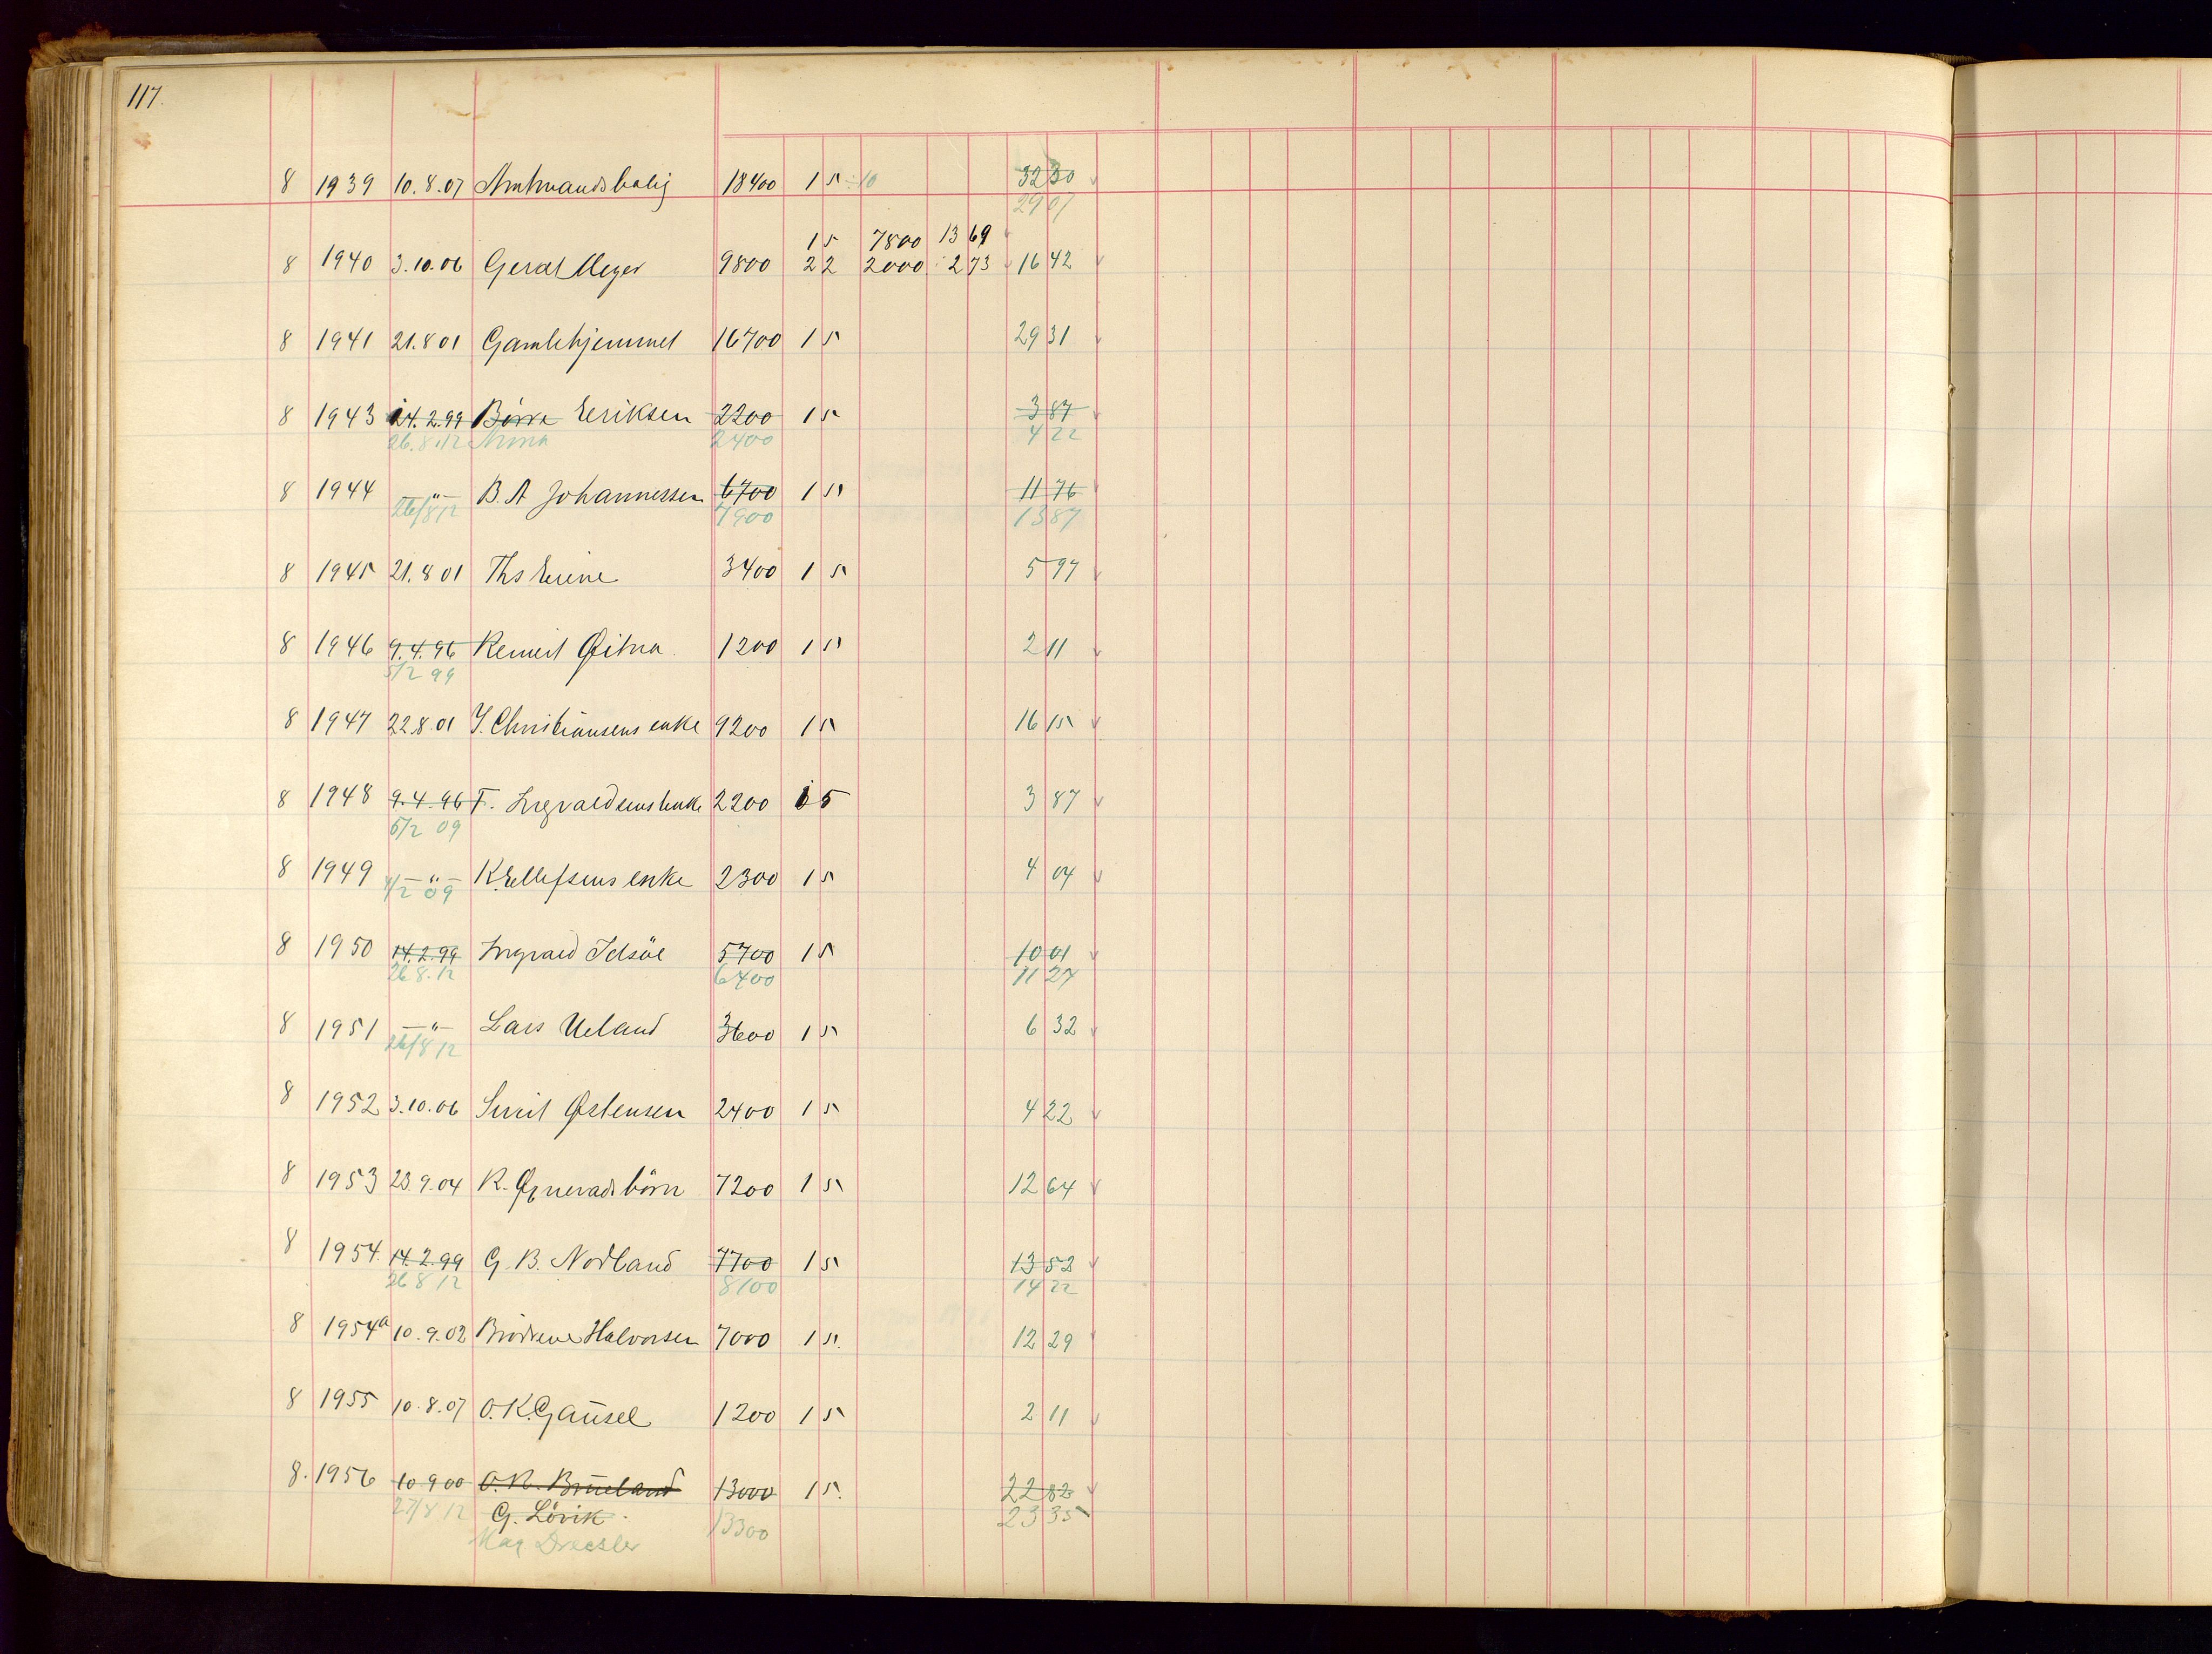 117.
8 1939 10.8.07 Amtmandsbolig 18400 1 5 ÷10 32 30
29 07
1 5 7800 13 69
8 1940 3.10.06 Gerat Meyer 9800 2 2 2000 2 73 16 42
8 1941 21.8 01 Gamlehjemmet 16700 1 5 29 31
8 1943 14.2.99 Børre Eeriksen 2200 1 5 3 87
26.8.12 Anna 2400 4 22
8 1944 —"— B. A Johannessen 6700 1 5 11 76
26/8 12 7900 13 87
8 1945 21.8 01 Ths Eeine 3400 1 5 5 97
8 1946 9.4.96 Reinert 1200 1 5 2 11
5/2 99
8 1947 22.8.01 J. Christiansens enke 9200 1 5 16 15
8 1948 9.4.96 T. Ingvaldsens Enke 2200 1 5 3 87
5/2 09
8 1949 —"— K. Ellefsens enke 2300 1 5 4 04
5/2 09
8 1950 14.2.99 Ingvald Idsöe 5700 1 5 10 01
26 8.12 6400 11 27
8 1951 —"— Lars Ueland 3600 1 5 6 32
26/8 12
8 1952 3.10.06 Sivert Østensen 2400 1 5 4 22
8 1953 23.9.04 K. børn 7200 1 5 12 64
8 1954 14.2.99 G. B. Nordland 7700 1 5 13 52
26 8 12 8100 14 22
8 1954a 10.9.02 Brødrene Halvorsen 7000 1 5. 12 29
8 1955 10.8.07 O. K. Gausel 1200 1 5 2 11
8. 1956 10 9 00 O. K. Brueland 13000 1 5. 22 82
27/8 12 G. Lövik 13300 23 35
Mag Dreesler